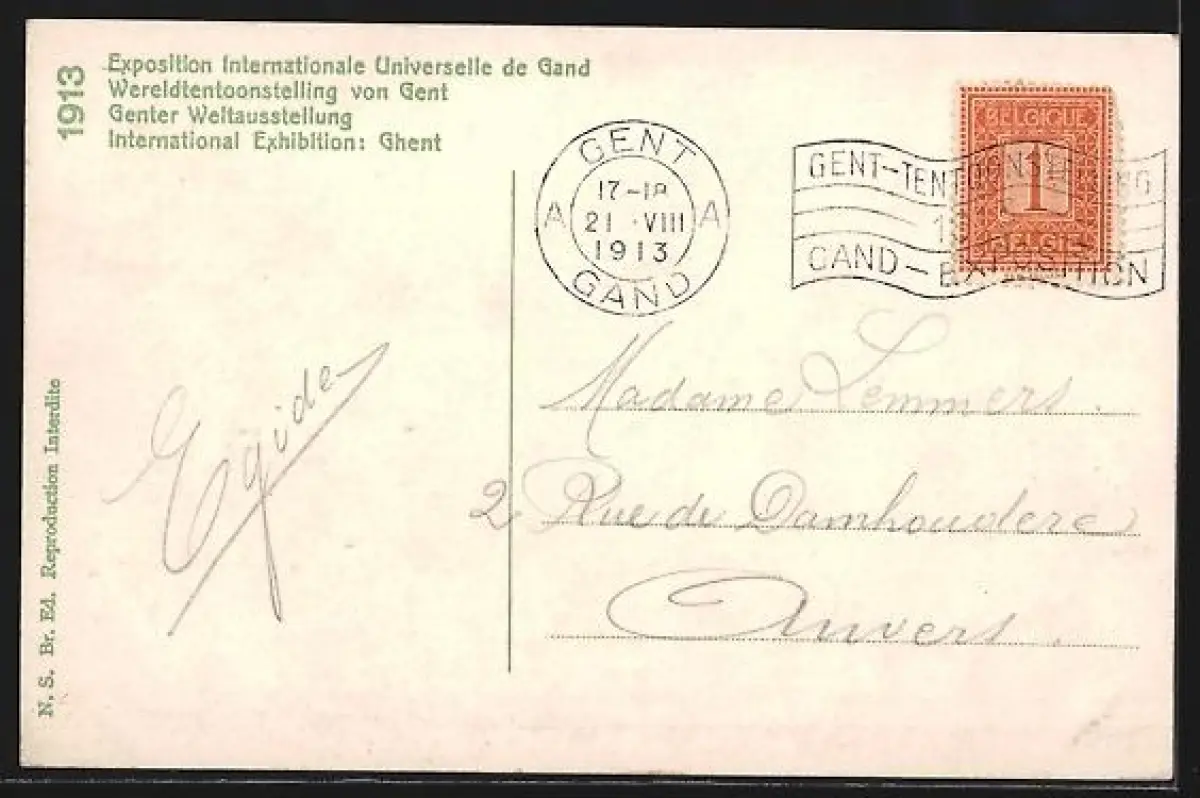 1913
Exposition Internationale Universelle de Gand
Wereldtentoonstelling von Gent
Genter Weltausstellung
International Exhibition: Ghent
GENT
17-18
A 21 VIII A
1913
GAND
GENT-TENTOONSTELLING
GAND-EXPOSITION
BELGIQUE
1
BELGIË
Madame Lemmers.
2 Rue de Damhoudere
Anvers.
Egide
N. S. Br. Ed. Reproduction Interdite